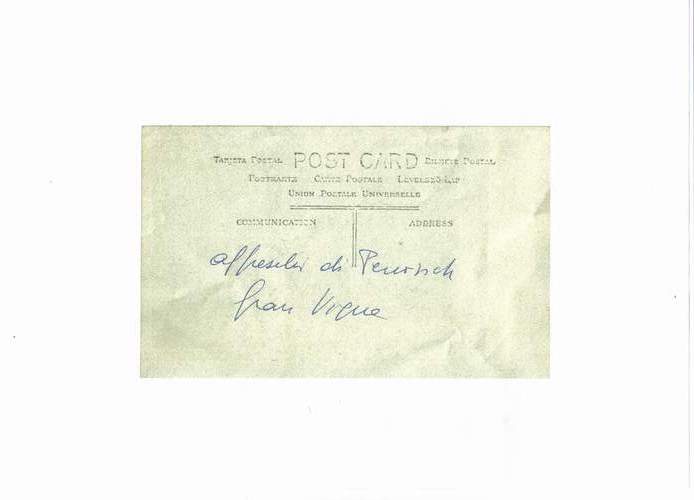 TARJETA POSTAL POST CARD BILHETE POSTAL
POSTKARTE CARTE POSTALE LEVELEZŐ-LAP
UNION POSTALE UNIVERSELLE
COMMUNICATION ADDRESS
affreschi di
Gran Vigne